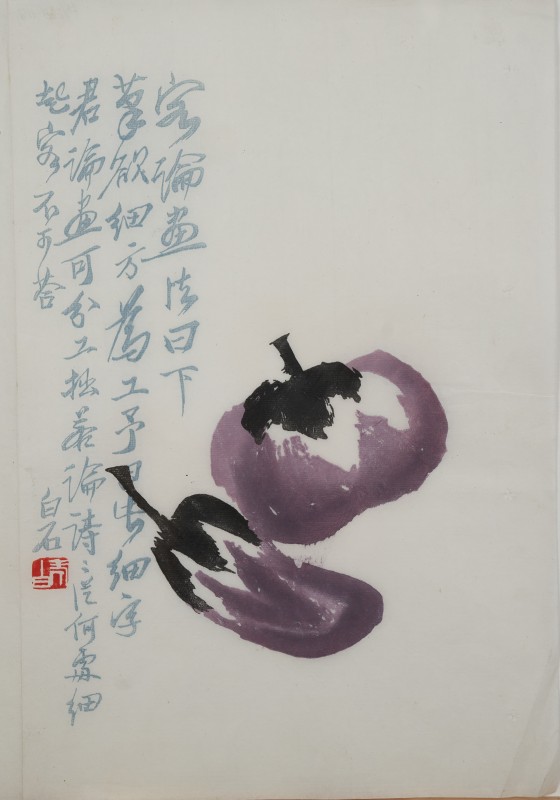 客論畫法曰下
筆欲細方為工予曰出細字
君論畫可分工拙若論詩〻從何處細
起客不可答
白石